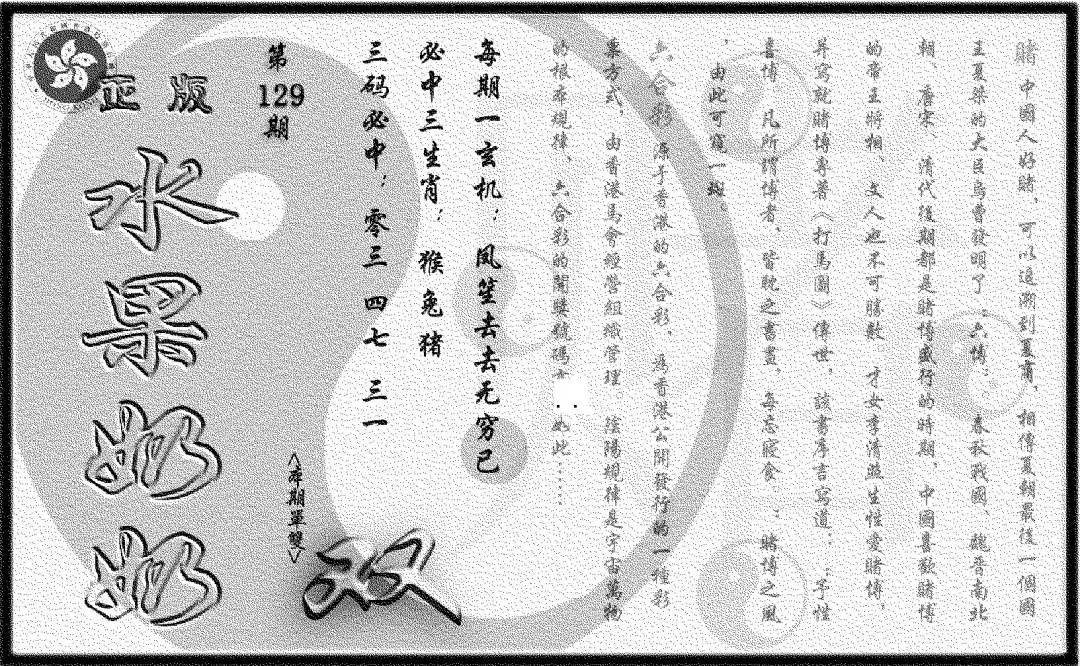 賭 中國人好賭，可以追溯到夏商，相傳夏朝最後一個國
主夏桀的大臣烏曹發明了：六博：。春秋戰國、魏晉南北
朝、唐宋、清代後期都是賭博盛行的時期，中國喜歡賭博
的帝王將相、文人也不可勝數，才女李清照生性愛賭博，
并寫就賭博專著《打馬圖》傳世，該書序言寫道：：予性
喜博，凡所謂博者，皆耽之晝，每忘寢食：賭博之風
，由此可窺一斑。
六合彩 源于香港的六合彩，為香港公開發行的一種彩
票方式，由香港馬會經營組織管理。陰陽規律是宇宙萬物
的根本規律、六合彩的開獎號碼如此……
每期一玄机：凤笙去去无穷已
必中三生肖：猴兔猪
三码必中：零三 四七 三一
第129期
<本期單雙>
双
正版
水果奶奶